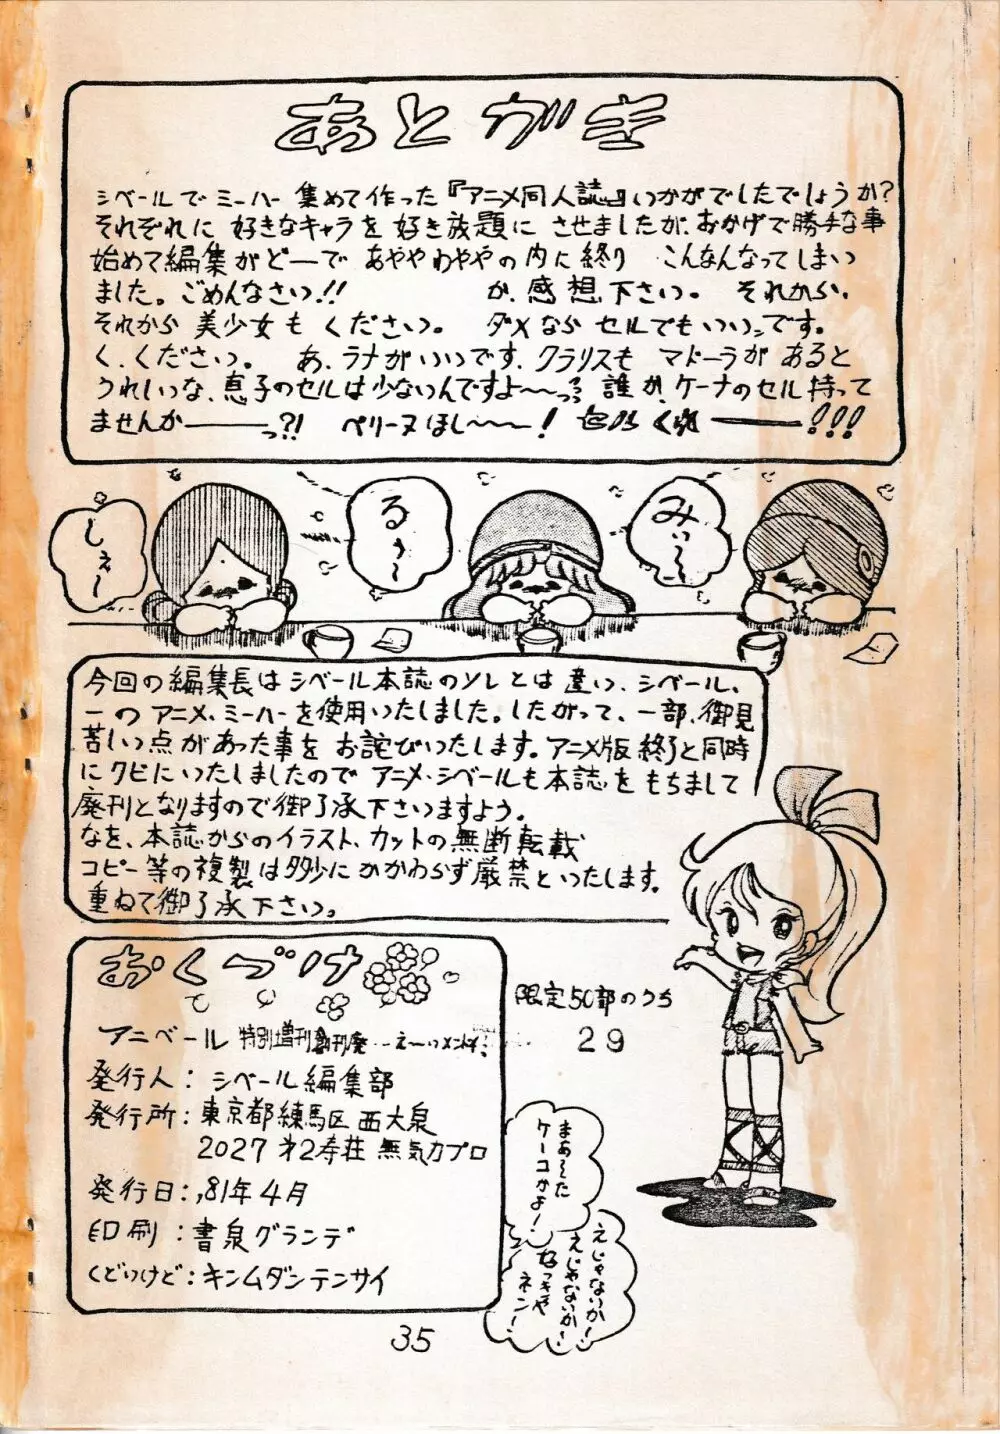 あとがき
シベールでミーハー集めて作った『アニメ同人誌』いかがでしたでしょうか?
それぞれに好きなキャラを好き放題にさせましたが、おかげで勝手な事
始めて編集がどーであややわややの内に終り こんなんなってしまい
ました。ごめんなさい!! が、感想下さい。 それから、
それから美少女もください。 ダメならセルでもいいです。
く、ください。 あ、ラナがいいです、クラリスも マドーラがあると
うれしいな、恵子のセルは少ないんですよ〜〜っ 誰か、ケーナのセル持って
ませんか———っ?! ペリーヌほし〜〜〜! セルくれ———!!!
しえ〜
るぅ〜〜
みぃ〜〜
今回の編集長はシベール本誌のソレとは違い、シベール、
一のアニメ・ミーハーを使用いたしました。したがって、一部、御見
苦しい点があった事をお詫びいたします。アニメ版終了と同時
にクビにいたしましたのでアニメ・シベールも本誌をもちまして
廃刊となりますので御了承下さいますよう。
なを、本誌からのイラスト、カットの無断転載
コピー等の複製は多少にかかわらず厳禁といたします。
重ねて御了承下さい。
おくづけ
アニベール 特別増刊創刊廃…え〜いメンドイ!
発行人:シベール編集部
発行所:東京都練馬区西大泉
2027 才2寿荘 無気力プロ
発行日:,81年4月
印刷:書泉グランデ
くどいけど:キンムダンテンサイ
限定50部のうち
29
まぁ〜た
ケーコかよ!
えじゃないか!
えじゃないか!
なつきや
ネン!
35